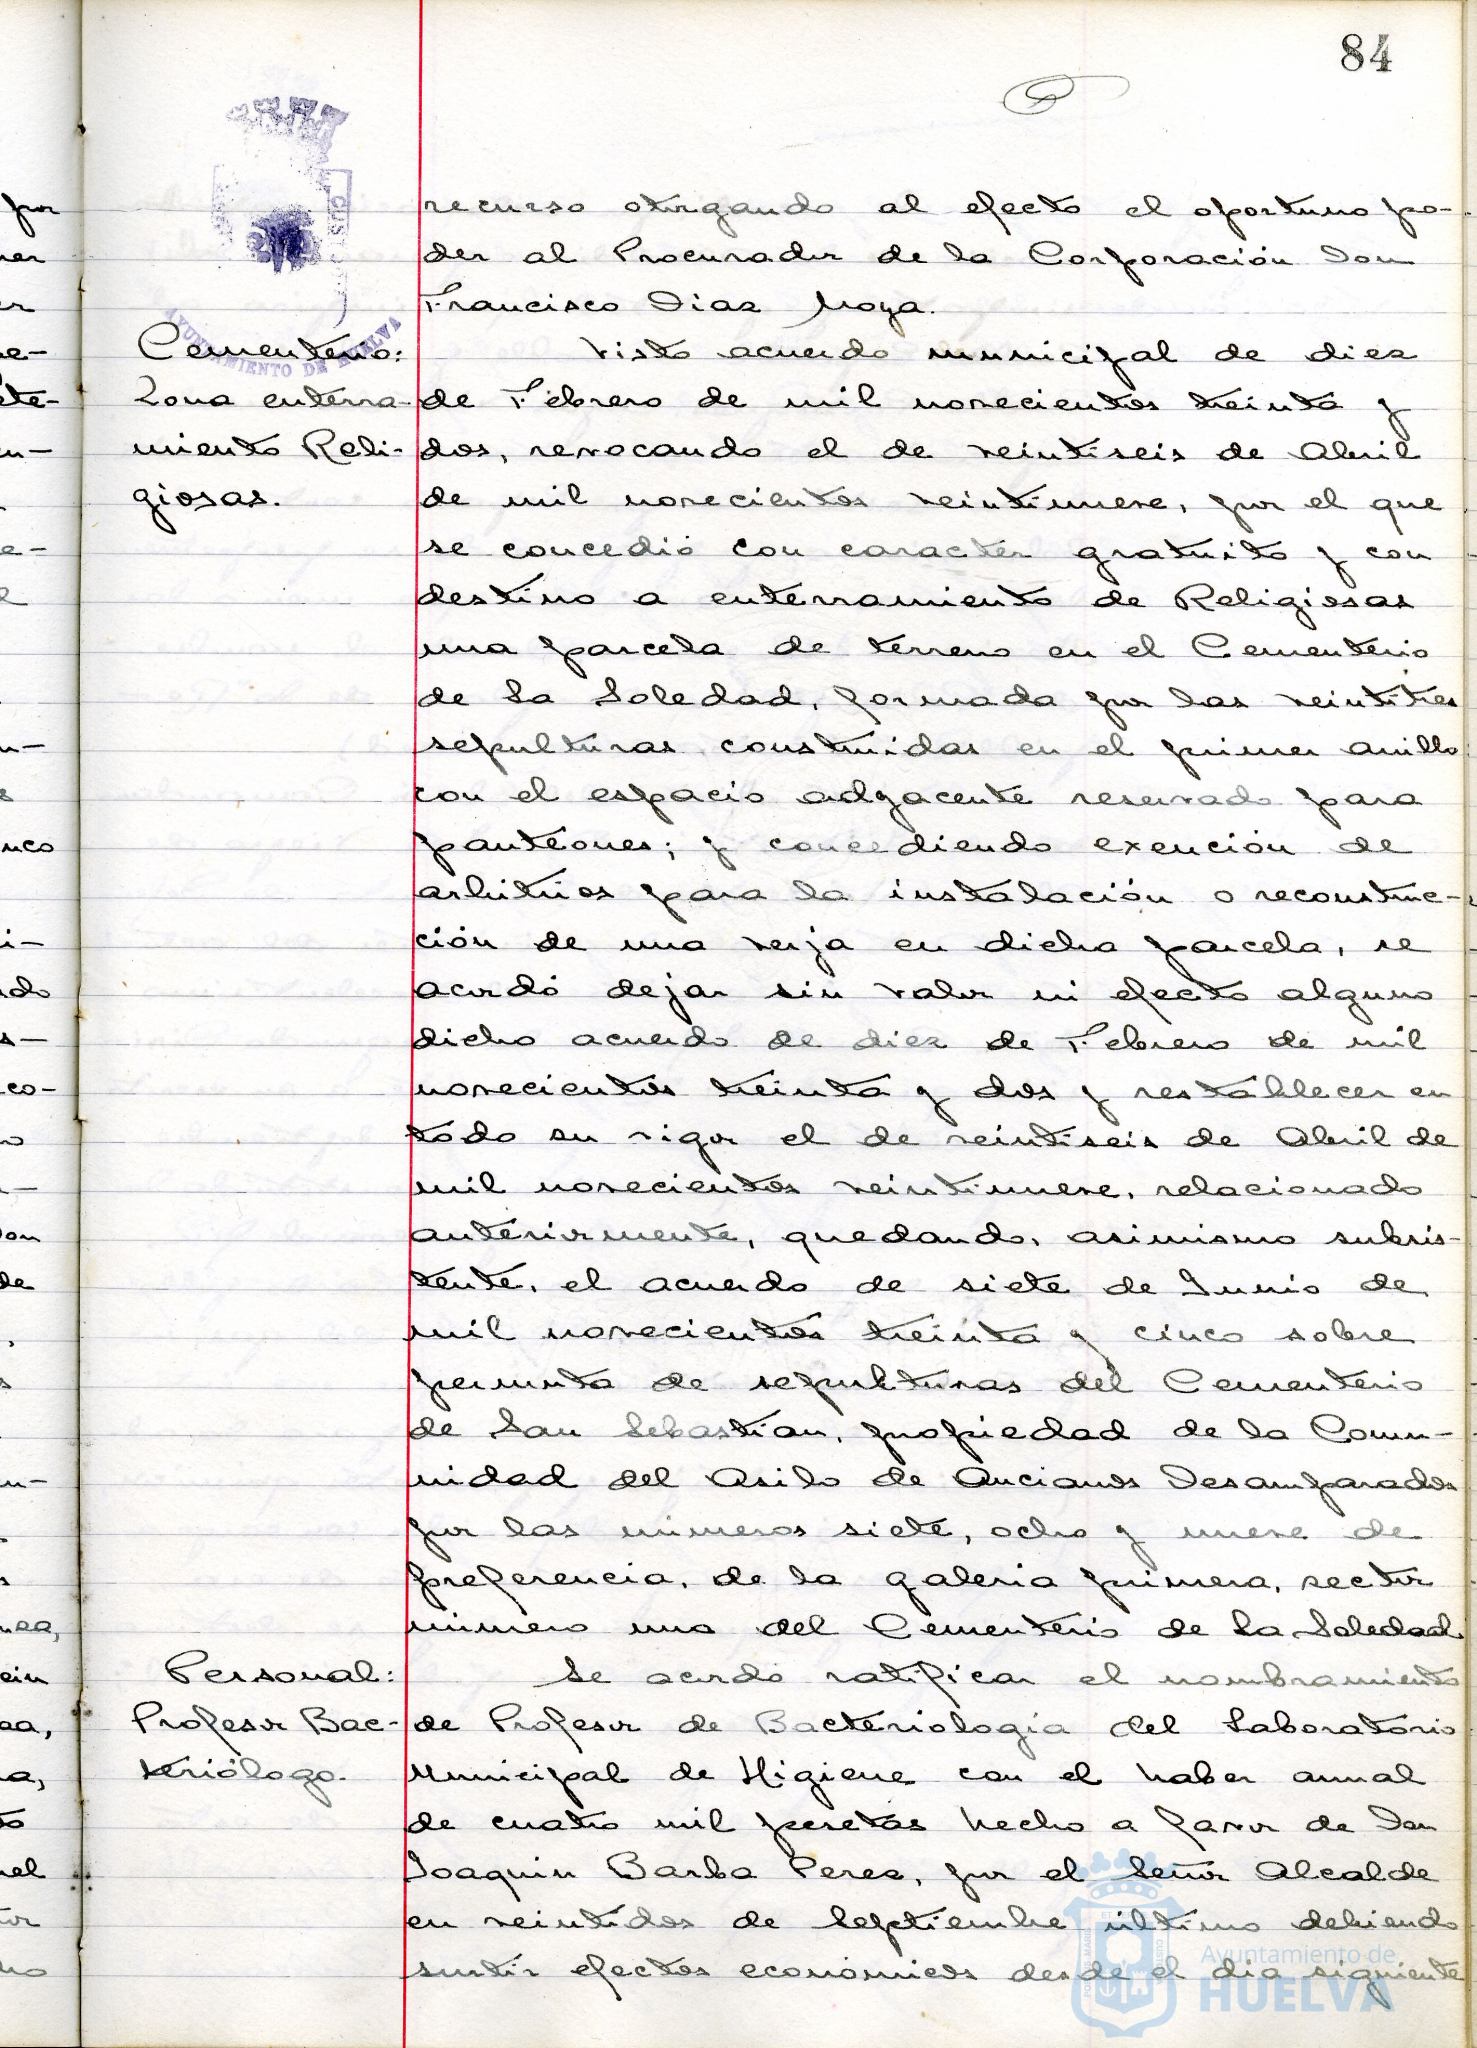 84
recurso otorgando al efecto el oportuno po-
der al Procurador de la Corporación Don
Francisco Diaz Moya.
Cementerio:
Zona enterra-
miento Reli-
giosas.
Visto acuerdo municipal de diez
de Febrero de mil novecientos treinta y
dos, revocando el de veintiseis de Abril
de mil novecientos veintinueve, por el que
se concedió con caracter gratuito y con
destino a enterramiento de Religiosas
una parcela de terreno en el Cementerio
de la Soledad, formada por las veintitres
sepulturas construidas en el primer anillo
con el espacio adyacente reservado para
panteones; y concediendo exención de
arbitrios para la instalación o reconstruc-
ción de una verja en dicha parcela, se
acordó dejar sin valor ni efecto alguno
dicho acuerdo de diez de Febrero de mil
novecientos treinta y dos y restablecer en
todo su vigor el de veintiseis de Abril de
mil novecientos veintinueve, relacionado
anteriormente, quedando, asimismo subsis-
tente, el acuerdo de siete de Junio de
mil novecientos treinta y cinco sobre
permuta de sepulturas del Cementerio
de San Sebastian, propiedad de la Comu-
nidad del Asilo de Ancianos Desamparados
por las números siete, ocho y nueve de
preferencia, de la galeria primera, sector
número uno del Cementerio de la Soledad.
Personal:
Profesor Bac-
teriólogo.
Se acordó ratificar el nombramiento
de Profesor de Bacteriología del Laboratorio
Municipal de Higiene con el haber anual
de cuatro mil pesetas hecho a favor de Don
Joaquin Barba Perez, por el Señor Alcalde
en veintidos de Septiembre último debiendo
surtir efectos económicos desde el dia siguiente
AYUNTAMIENTO DE HUELVA
Ayuntamiento de
HUELVA